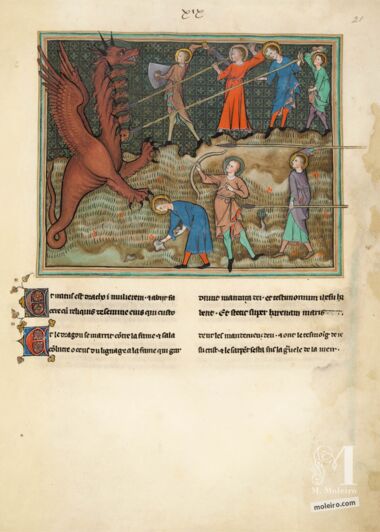 xix
21
Et iratus est draco i mulierem · & abiit fa
cere cū reliquis de semine eius qui custo
diunt mandata dei · et testimonium ihesu ha
bent · Et stetit super harenam maris
Et le dragon se marrie cōtre la fame & sala
cōbatre o ceus du lignage a la fame qui gar
dent les mandemenz deu · & ont le tesmoig de ie
su crist · & le sus la de la mer ·
M
M. Moleiro
moleiro.com